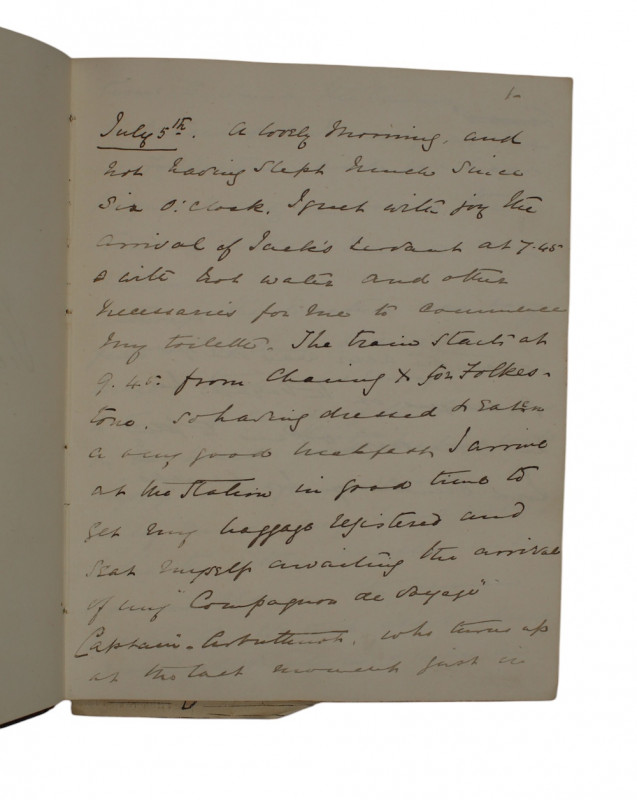 1-
July 5th. A lovely Morning, and
not having slept much since
Six O'Clock. I greet with joy the
arrival of Jack's servant at 7.45
with hot water and other
necessaries for me to commence
my toilette. The train starts at
9.45 from Charing X for Folkes-
tone. So having dressed & eaten
a very good breakfast, I arrive
at the station in good time to
get my baggage registered and
seat myself awaiting the arrival
of my "Compagnon de Voyage"
Captain Arbuthnot. who turns up
at the last moment just in